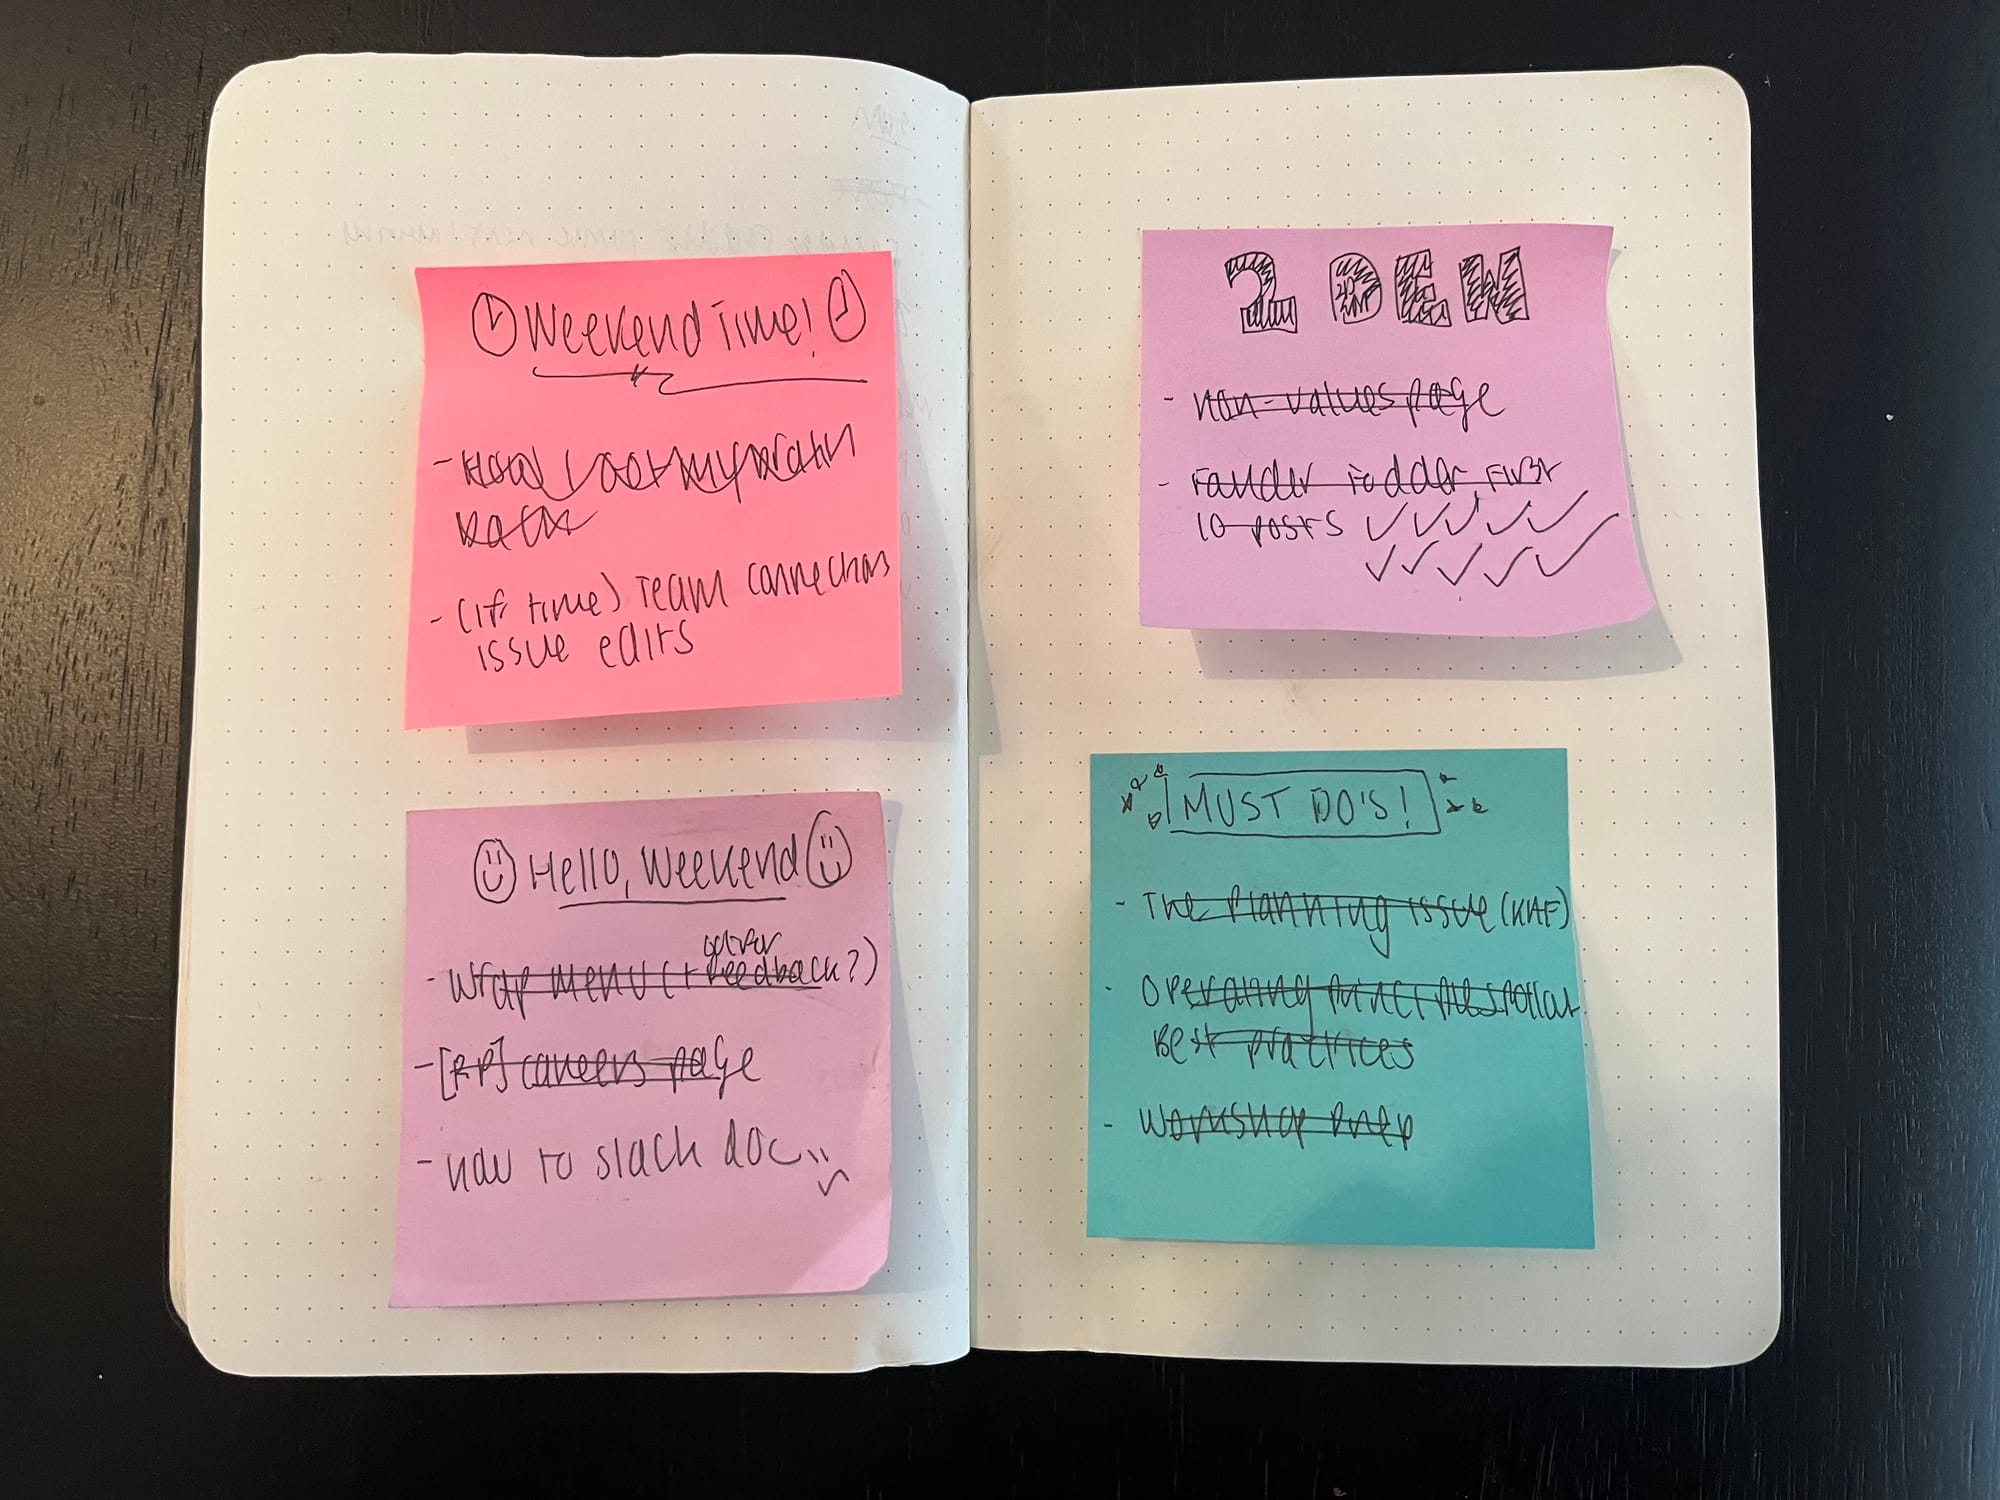 Weekend Time!
- How I Got My Brain
Back
- (if time) Team connections
issue edits
Hello, Weekend
- Wrap MENU (+ feedback?)
- [RP] careers page
- how to slack doc
2 DEW
- non-values page
- Founder Fodder, First
10 posts ✓✓✓✓✓
✓✓✓✓✓
MUST DO'S!
- The Planning issue (KAF)
- Operating Principles
Best practices
- Workshop Prep